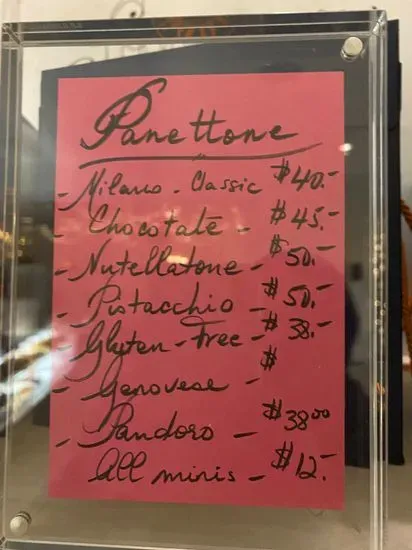 Panettone
- Milano - Classic $40.-
- Chocotate - $45.-
- Nutellatone - $50.-
- Pistacchio - $50.-
- Gluten-Free - $38.-
- Genovese - $
- Pandoro - $38.00
All minis - $12.-